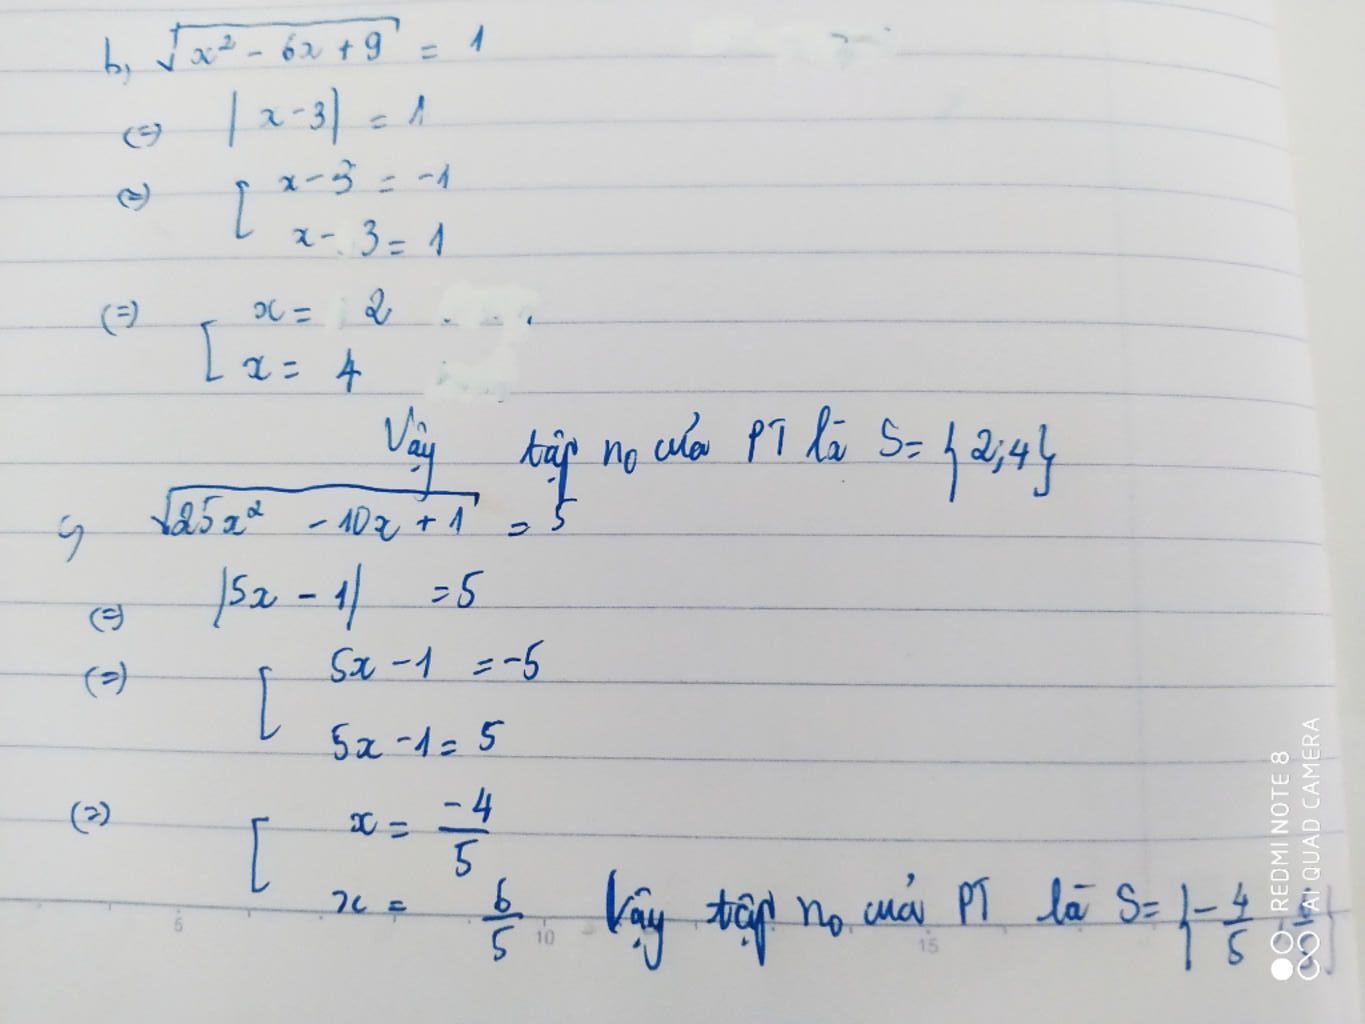 b, √(x² - 6x + 9) = 1
(=) |x - 3| = 1
(=) [ x - 3 = -1
x - 3 = 1
(=) [ x = 2
x = 4
Vậy tập no của PT là S = {2; 4}
c, √(25x² - 10x + 1) = 5
(=) |5x - 1| = 5
(=) [ 5x - 1 = -5
5x - 1 = 5
(=) [ x = -4/5
x = 6/5 Vậy tập no của PT là S = {-4/5
5 10 15
REDMI NOTE 8
AI QUAD CAMERA